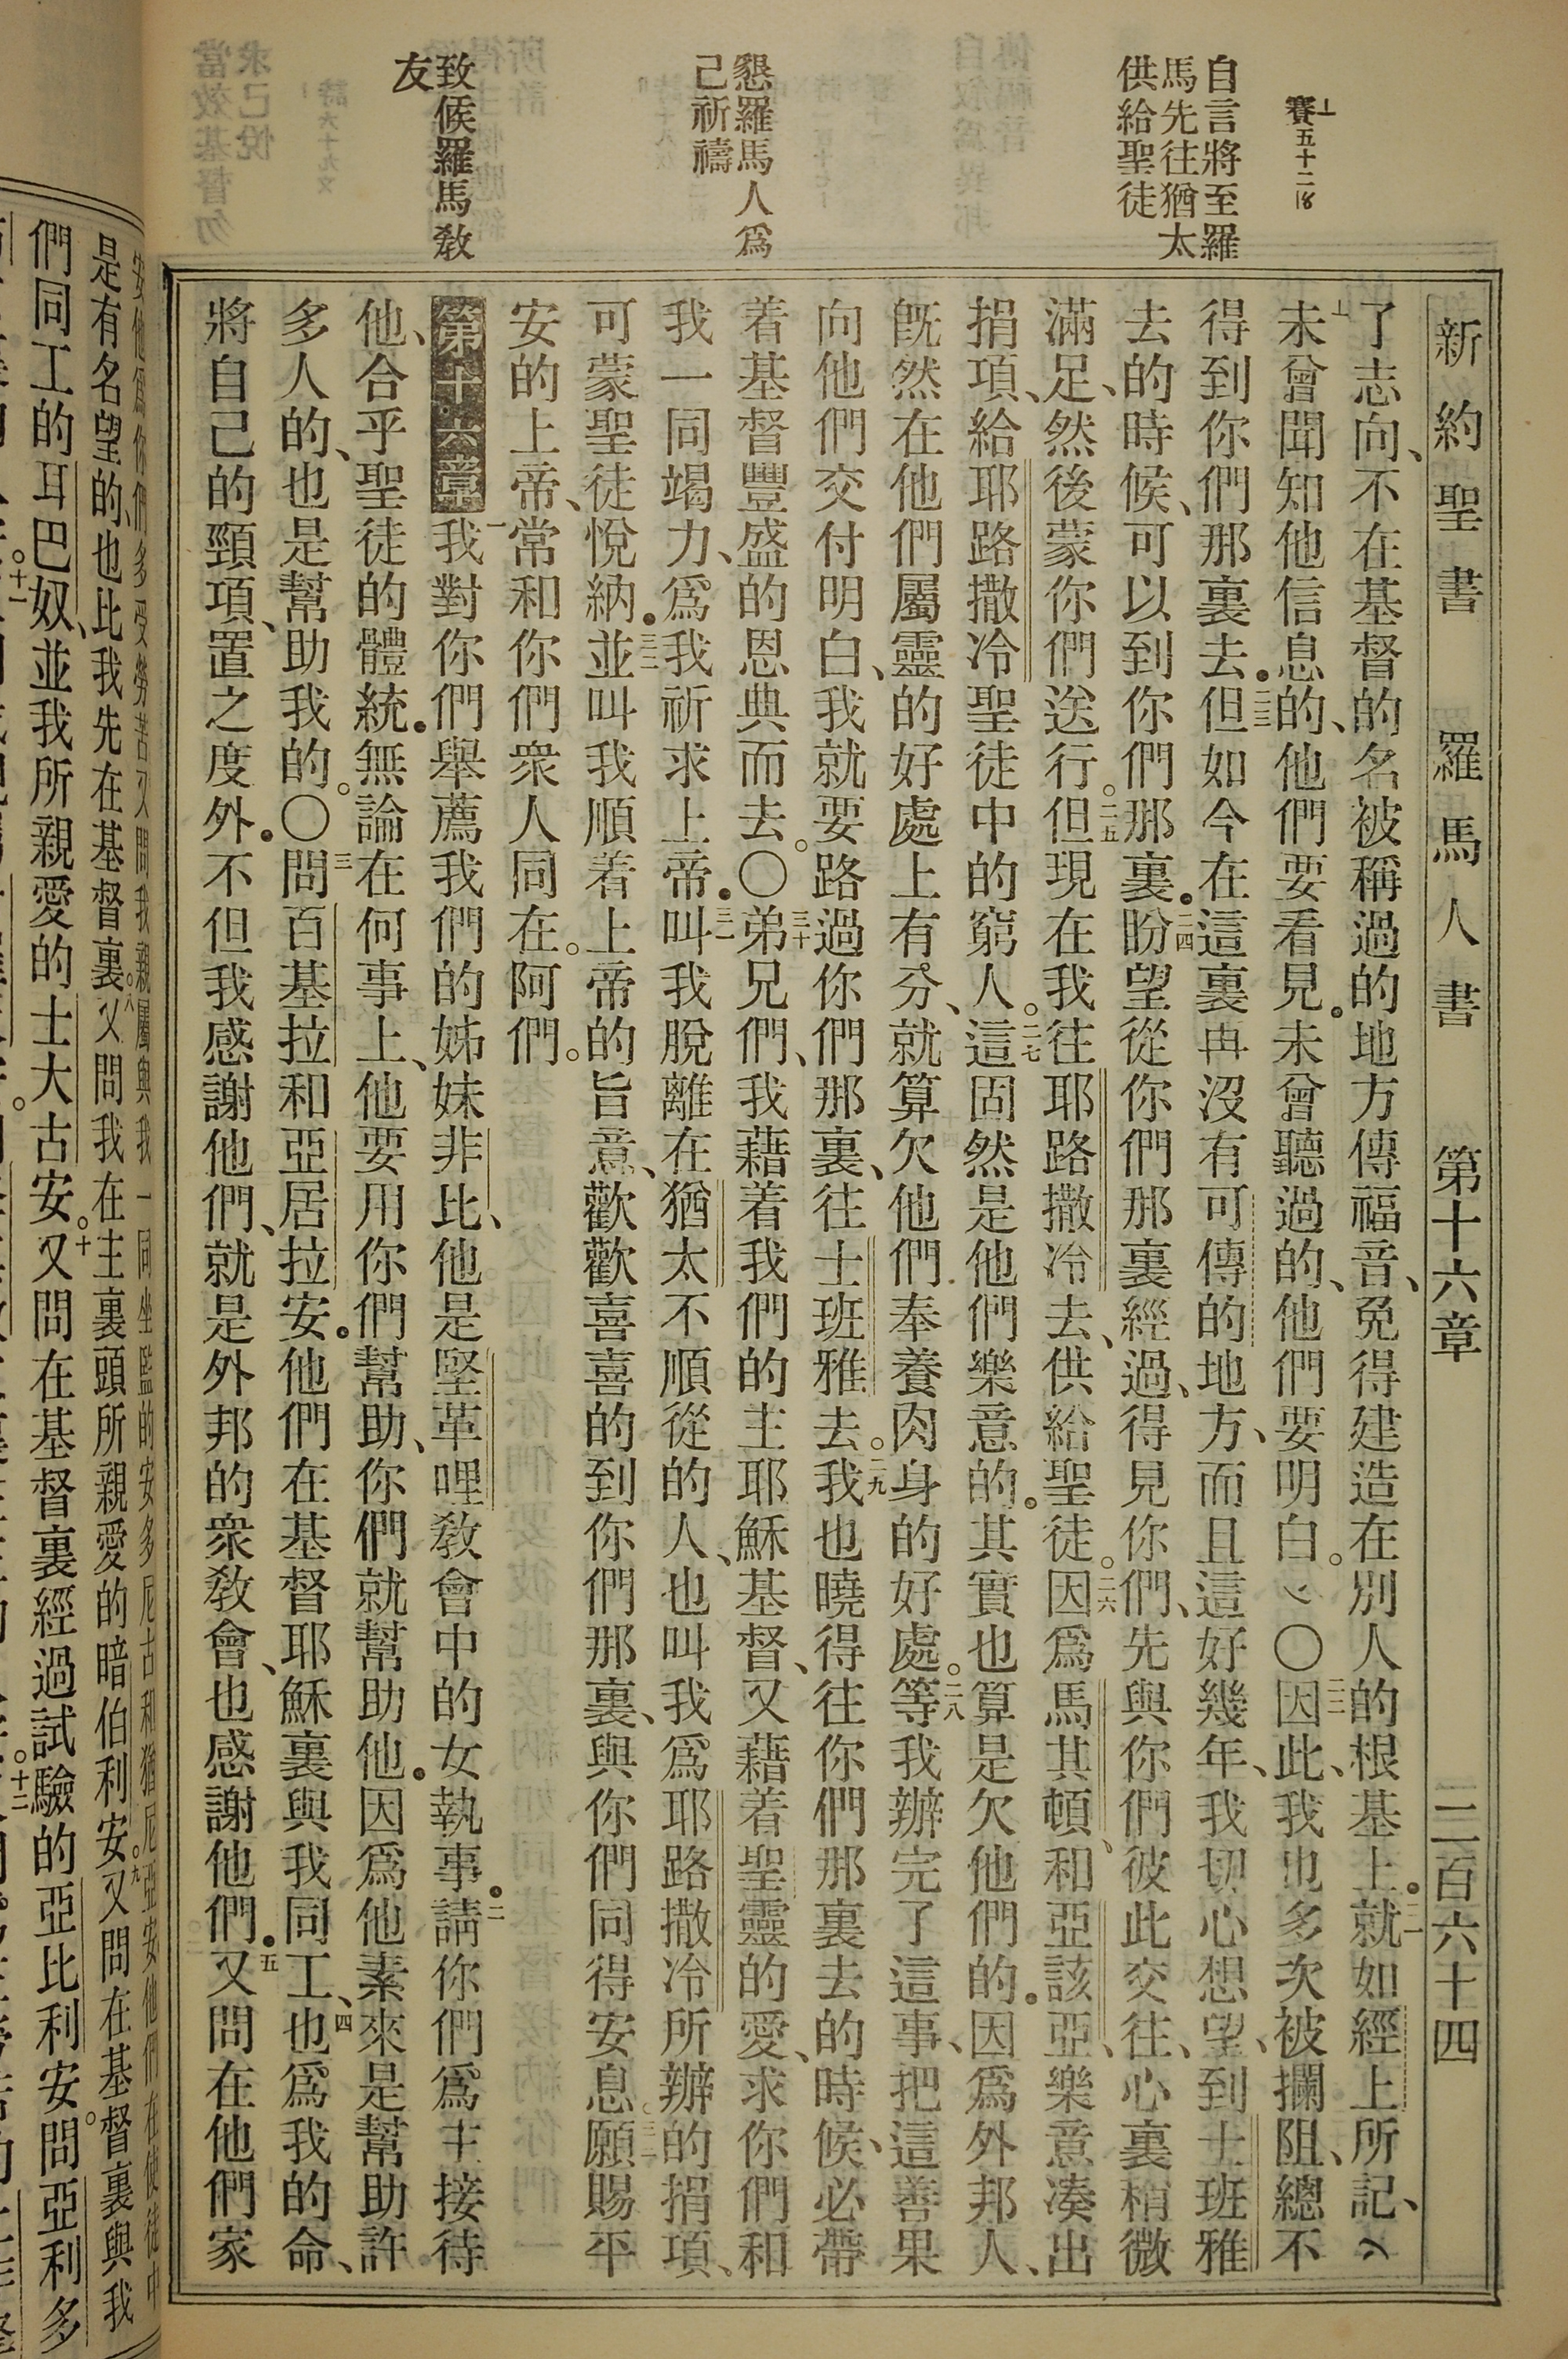 新約聖書 羅馬人書 第十六章 二百六十四
賽五十二15
自言將至羅
馬先往猶太
供給聖徒
懇羅馬人爲
己祈禱
致候羅馬教
友
了志向、不在基督的名被稱過的地方傳福音、免得建造在別人的根基上．二一就如經上所記、
未曾聞知他信息的、他們要看見．未曾聽過的、他們要明白。〇二二因此、我也多次被攔阻、總不
得到你們那裏去．二三但如今在這裏再沒有可傳的地方、而且這好幾年、我切心想望、到士班雅
去的時候、可以到你們那裏．二四盼望從你們那裏經過、得見你們、先與你們彼此交往、心裏稍微
滿足、然後蒙你們送行。二五但現在我往耶路撒冷去、供給聖徒。二六因爲馬其頓、和亞該亞、樂意湊出
捐項、給耶路撒冷聖徒中的窮人。二七這固然是他們樂意的．其實也算是欠他們的．因爲外邦人、
旣然在他們屬靈的好處上有分、就算欠他們奉養肉身的好處。二八等我辦完了這事、把這善果
向他們交付明白、我就要路過你們那裏、往士班雅去。二九我也曉得往你們那裏去的時候、必帶
着基督豐盛的恩典而去。〇三十弟兄們、我藉着我們的主耶穌基督、又藉着聖靈的愛、求你們和
我一同竭力、爲我祈求上帝．三一叫我脫離在猶太不順從的人、也叫我爲耶路撒冷所辦的捐項、
可蒙聖徒悅納．三二並叫我順着上帝的旨意、歡歡喜喜的到你們那裏、與你們同得安息。三三願賜平
安的上帝、常和你們衆人同在。阿們。
第十六章 一我對你們舉薦我們的姊妹非比、他是堅革哩教會中的女執事．二請你們爲主接待
他、合乎聖徒的體統．無論在何事上、他要用你們幫助、你們就幫助他．因爲他素來是幫助許
多人的、也是幫助我的。〇三問百基拉和亞居拉安．他們在基督耶穌裏與我同工、四也爲我的命、
將自己的頸項、置之度外．不但我感謝他們、就是外邦的衆教會、也感謝他們．五又問在他們家
安他爲你們多受勞苦又問我親屬與我一同坐監的安多尼古和猶尼亞安他們在使徒中
是有名望的、也比我先在基督裏。八又問我在主裏頭所親愛的暗伯利安。九又問在基督裏與我
們同工的耳巴奴、並我所親愛的士大古安。十又問在基督裏經過試驗的亞比利安。問亞利多